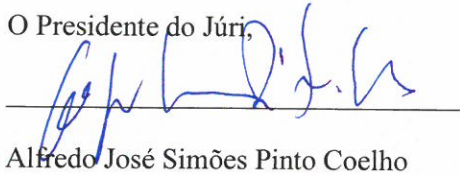 O Presidente do Júri,
Alfredo José Simões Pinto Coelho